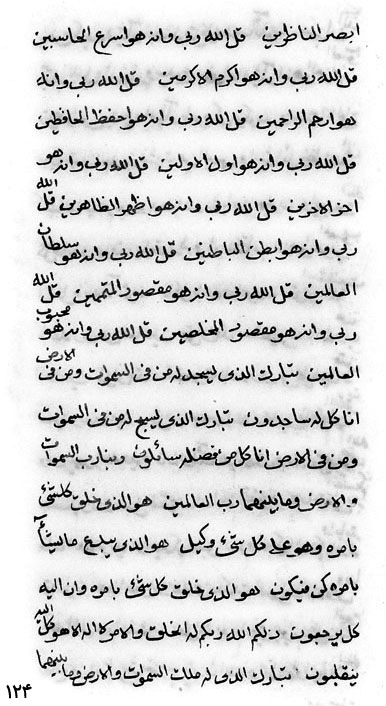 ابصر الناظرين قل الله ربي وانه هو اسرع الحاسبين
قل الله ربي وانه هو اكرم الاكرمين قل الله ربي وانه
هو ارحم الراحمين قل الله ربي وانه هو احفظ الحافظين
قل الله ربي وانه هو اول الاولين قل الله ربي وانه هو
اخر الاخرين قل الله ربي وانه هو اظهر الظاهرين قل الله
ربي وانه هو ابطن الباطنين قل الله ربي وانه هو سلطان
العالمين قل الله ربي وانه هو مقصود المتممين قل الله
ربي وانه هو مقصود المخلصين قل الله ربي وانه هو محبوب
العالمين تبارك الذي يسجد له من في السموات ومن في الارض
انا كل له ساجدون تبارك الذي يسبح له من في السموات
ومن في الارض انا كل من فضله سائلون وتبارك رب السموات
والارض وما بينهما رب العالمين هو الذي خلق كلشئ
بامره وهو على كل شئ وكيل هو الذي يبدع ما يشآء
بامره كن فيكون هو الذي خلق كل شئ بامره وان اليه
كل يرجعون ذلكم الله ربكم له الخلق والامر لا اله الا هو كل اليه
ينقلبون تبارك الذي له ملك السموات والارض وما بينهما
۱۲۴